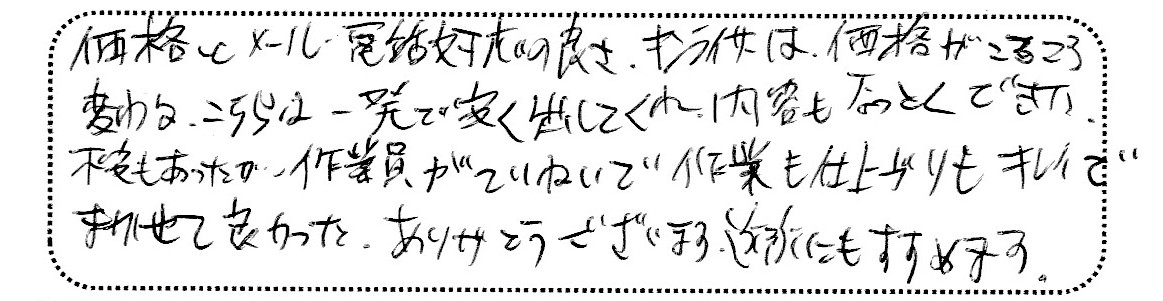 価格とメール・電話対応の良さ。他サイトは、価格がころころ
変わる。こちらは一発で安く出してくれ、内容もなっとくできた。
不安もあったが、作業員がていねいで作業も仕上がりもキレイで
まかせて良かった。ありがとうございます。近所にもすすめます。